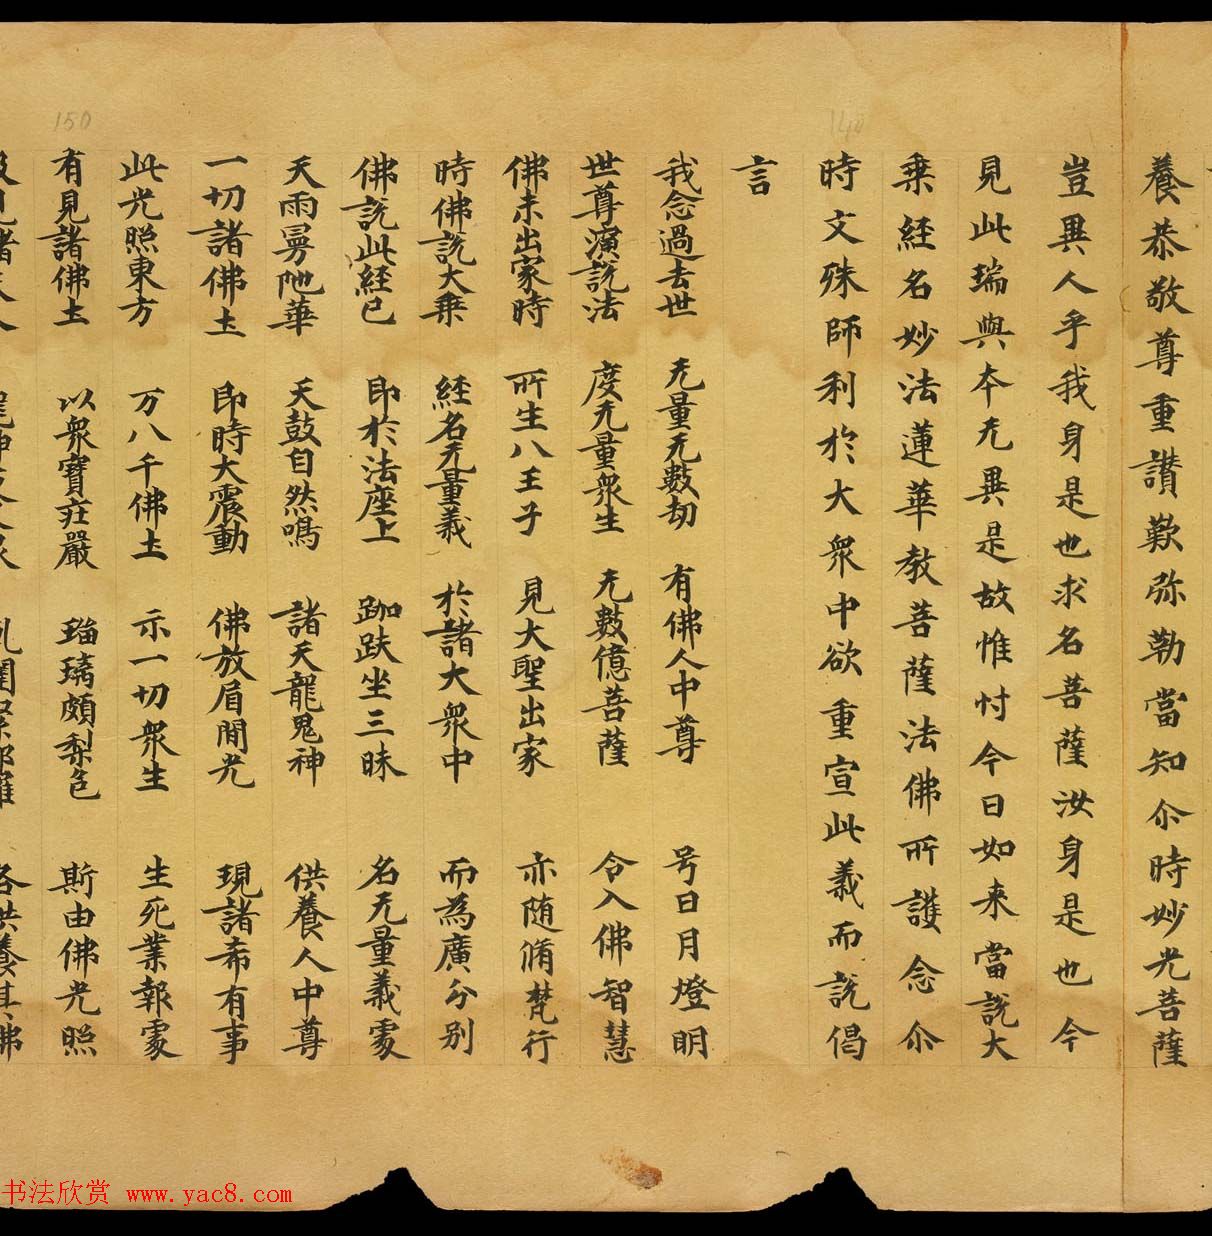 養恭敬尊重讃歎弥勒當知尒時妙光菩薩
豈異人乎我身是也求名菩薩汝身是也今
見此瑞與本无異是故惟忖今日如来當說大
乗経名妙法蓮華教菩薩法佛所護念尒
時文殊師利於大衆中欲重宣此義而說偈
言
我念過去世 无量无數劫 有佛人中尊 号日月燈明
世尊演說法 度无量衆生 无數億菩薩 令入佛智慧
佛未出家時 所生八王子 見大聖出家 亦随脩梵行
時佛說大乗 経名无量義 於諸大衆中 而為廣分别
佛說此経已 即於法座上 跏趺坐三昧 名无量義處
天雨曼陁華 天鼓自然鳴 諸天龍鬼神 供養人中尊
一切諸佛土 即時大震動 佛放眉間光 現諸希有事
此光照東方 万八千佛土 示一切衆生 生死業報處
有見諸佛土 以衆寶荘嚴 瑠璃頗梨色 斯由佛光照
各供養其佛
150
140
书法欣赏 www.yac8.com